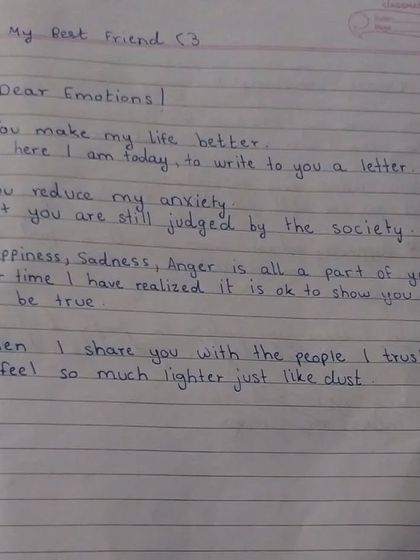 My Best Friend <3
Dear Emotions!
You make my life better.
here I am today, to write to you a letter.
reduce my anxiety.
you are still judged by the society.
Sadness, Anger is all a part of
time I have realized it is ok to show you
be true.
I share you with the people I trust
feel so much lighter just like dust.